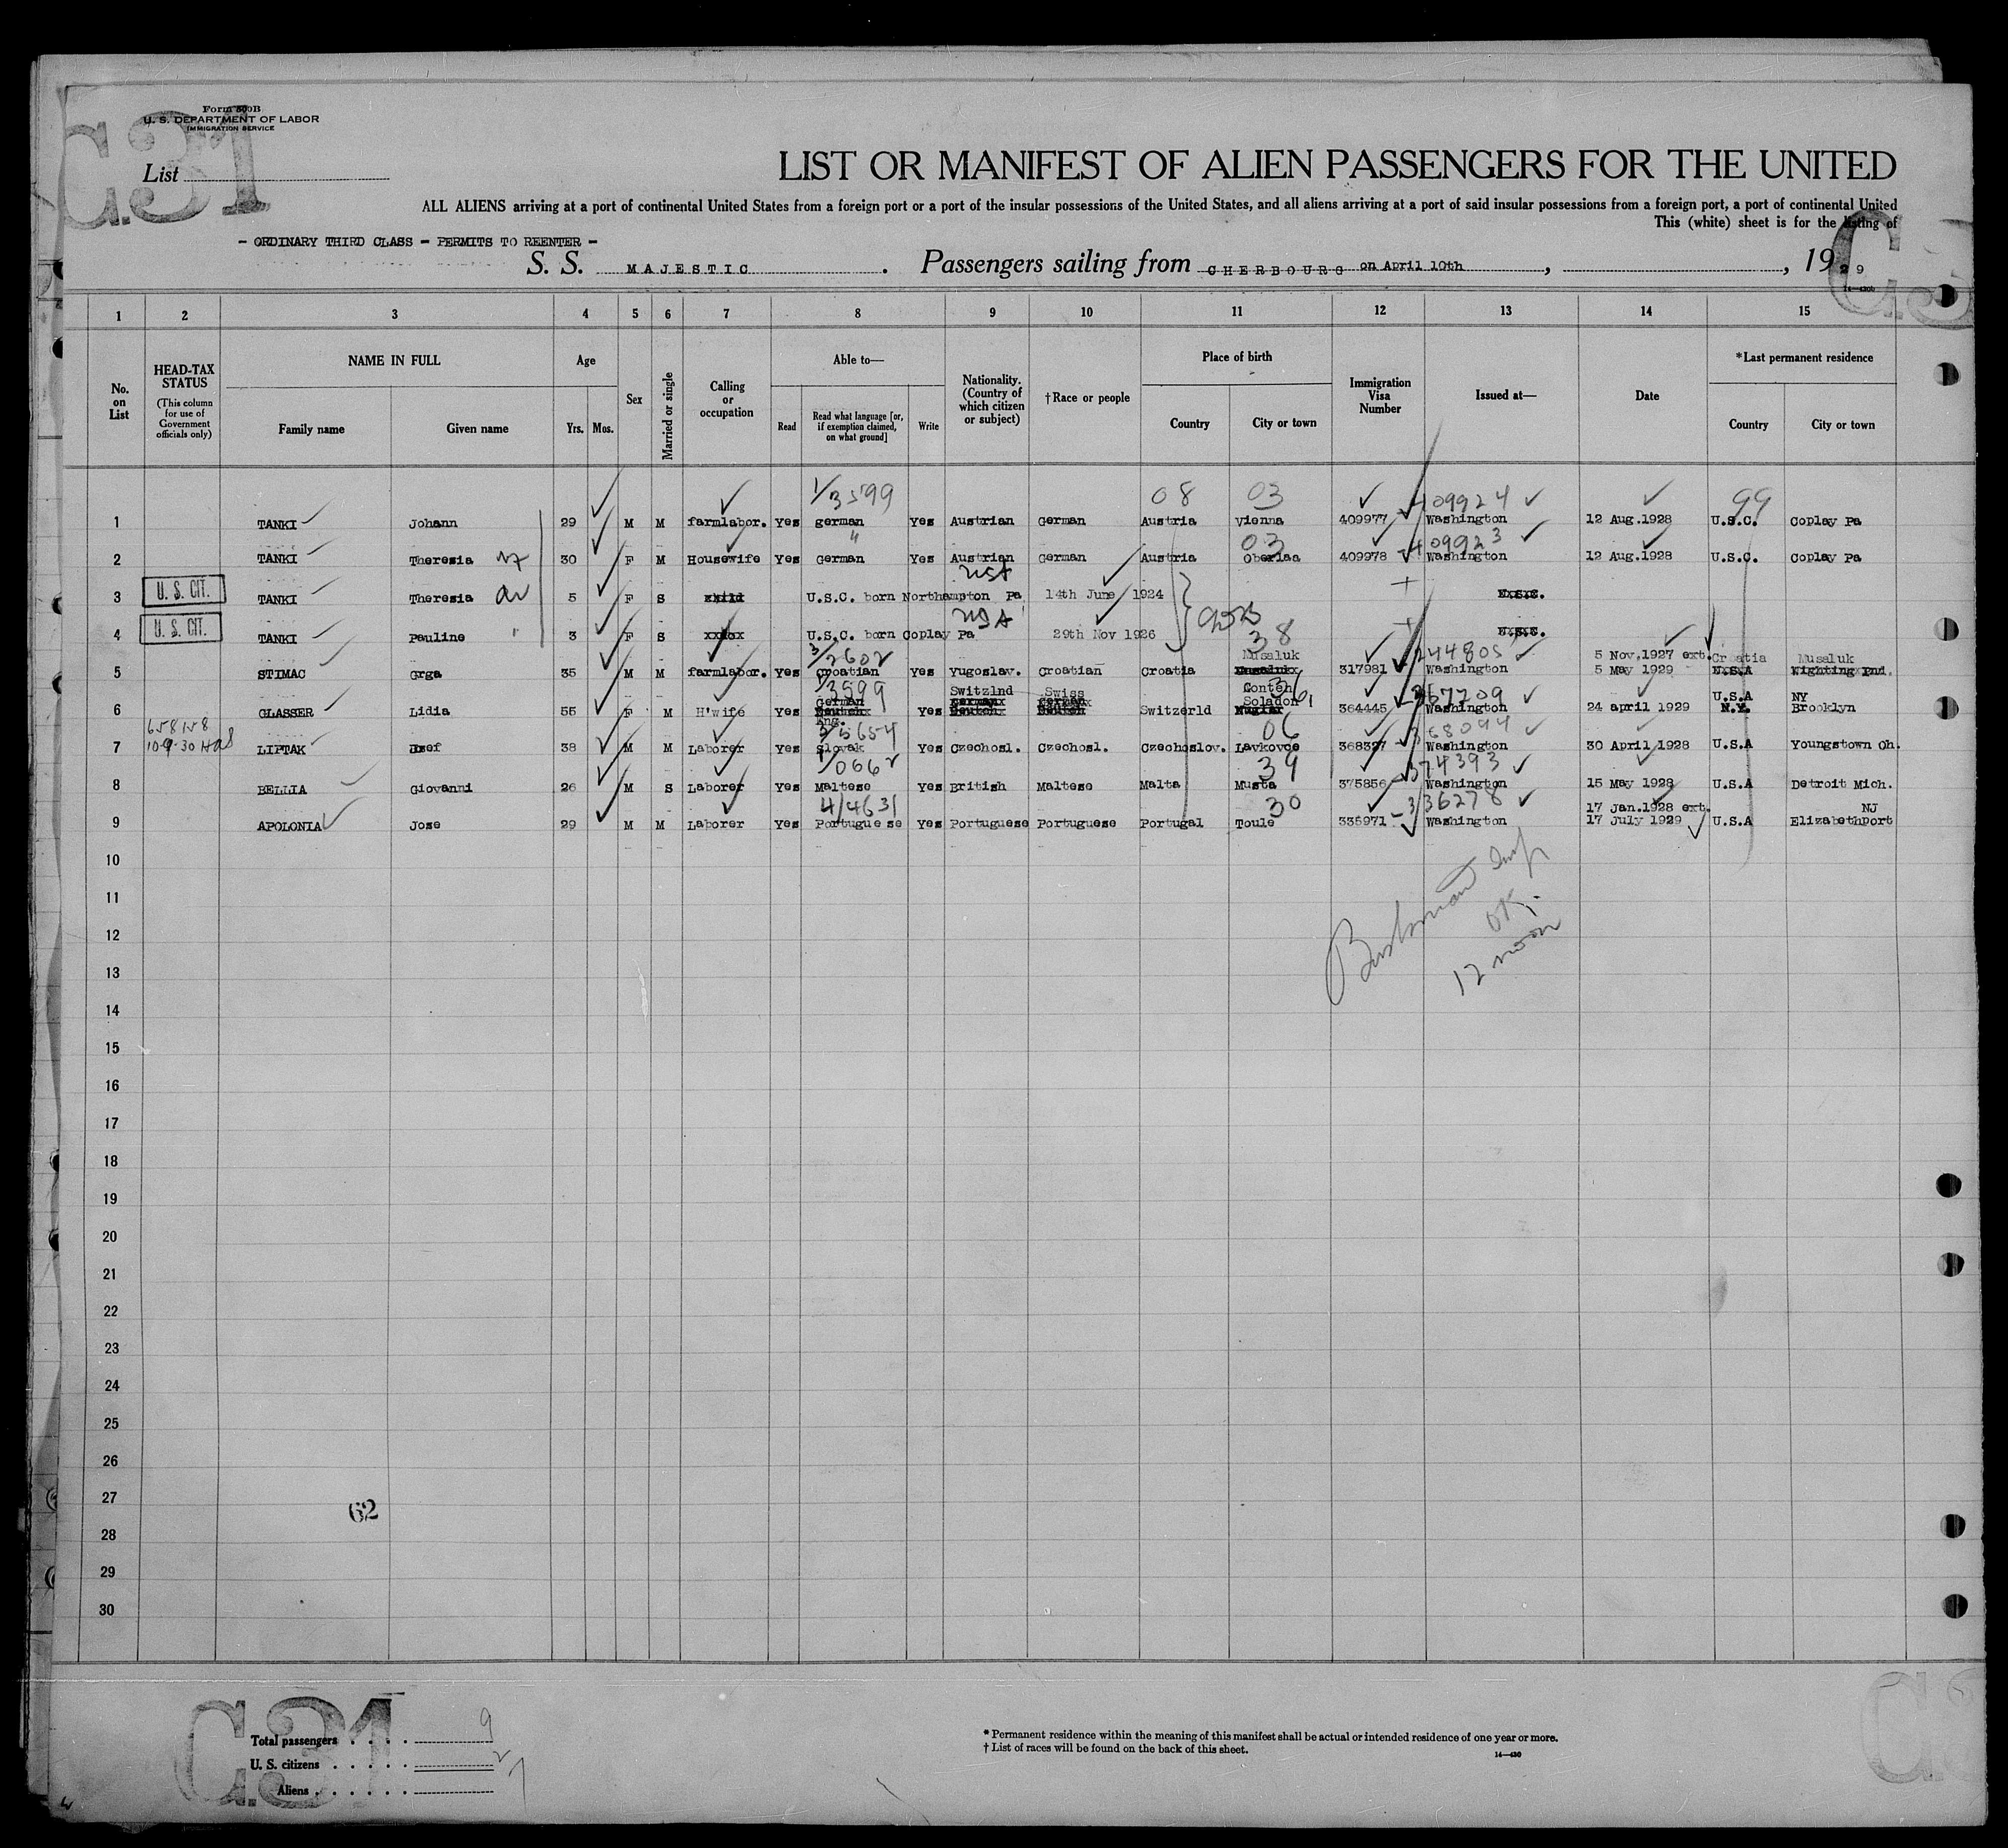 Form 500B
U. S. DEPARTMENT OF LABOR
IMMIGRATION SERVICE
C.31
List
LIST OR MANIFEST OF ALIEN PASSENGERS FOR THE UNITED
ALL ALIENS arriving at a port of continental United States from a foreign port or a port of the insular possessions of the United States, and all aliens arriving at a port of said insular possessions from a foreign port, a port of continental United
This (white) sheet is for the listing of
- ORDINARY THIRD CLASS - PERMITS TO REENTER -
S. S. MAJESTIC . Passengers sailing from CHERBOURG on April 10th , , 1929
1 2 3 4 5 6 7 8 9 10 11 12 13 14 15
No. on List
HEAD-TAX STATUS
(This column for use of Government officials only)
NAME IN FULL
Family name
Given name
Age
Yrs. Mos.
Sex
Married or single
Calling or occupation
Able to—
Read
Read what language [or, if exemption claimed, on what ground]
Write
Nationality. (Country of which citizen or subject)
†Race or people
Place of birth
Country
City or town
Immigration Visa Number
Issued at—
Date
*Last permanent residence
Country
City or town
1/3599 08 03 409924 99
1 TANKI Johann 29 M M farmlabor. Yes german Yes Austrian German Austria Vienna 409977 Washington 12 Aug.1928 U.S.C. Coplay Pa
" 03 409923
2 TANKI Theresia 30 F M Housewife Yes German Yes Austrian German Austria Oberlaa 409978 Washington 12 Aug.1928 U.S.C. Coplay Pa
U. S. CIT. USA
3 TANKI Theresia 5 F S child U.S.C. born Northampton Pa 14th June 1924 U.S.C.
U. S. CIT. USA
4 TANKI Pauline 3 F S U.S.C. born Coplay Pa 29th Nov 1926 U.S.C.
3/2602 38 Musaluk 244805 5 Nov.1927 ext. Croatia Musaluk
5 STIMAC Grga 35 M M farmlabor. Yes Croatian Yes Yugoslav. Croatian Croatia 317981 Washington 5 May 1929 U.S.A
1/3599 German Switzlnd Swiss German Conteh Soladon 36 357209 U.S.A NY
6 GLASSER Lidia 55 F M H'wife Yes Deutsch Yes Deutsch Deutsch Switzerld 364445 Washington 24 april 1929 N.Y. Brooklyn
Eng.
658158
10-9-30
3/5654 06 368094
7 LIPTAK Josef 38 M M Laborer Yes Slovak Yes Czechosl. Czechosl. Czechoslov. Lavkovce 368327 Washington 30 April 1928 U.S.A Youngstown Oh.
1/0662 39 374393
8 BELLIA Giovanni 26 M S Laborer Yes Maltese Yes British Maltese Malta Musta 375856 Washington 15 May 1928 U.S.A Detroit Mich.
4/4631 30 336278 17 Jan.1928 ext. NJ
9 APOLONIA Jose 29 M M Laborer Yes Portuguese Yes Portuguese Portuguese Portugal Toule 335971 Washington 17 July 1929 U.S.A Elizabethport
10
11
Insp
OK.
12
12 noon
13
14
15
16
17
18
19
20
21
22
23
24
25
26
27
62
28
29
30
C.31
Total passengers . . . . 9
U. S. citizens . . . . . 2
Aliens . . . . . . 7
* Permanent residence within the meaning of this manifest shall be actual or intended residence of one year or more.
† List of races will be found on the back of this sheet.
14—430